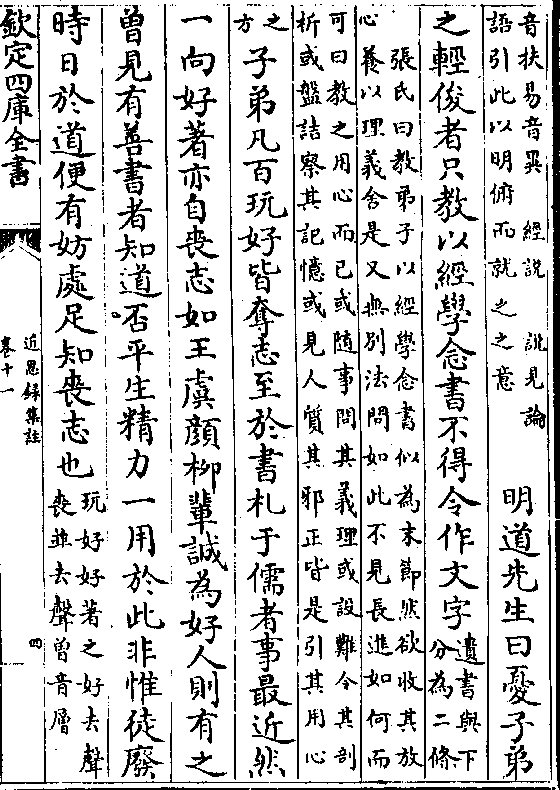 音扶易音異　經説　説見論
語引此以明俯而就之之意
明道先生曰憂子弟
之輕俊者只教以經學念書不得令作文字
遺書與下
分為二條
張氏曰教弟子以經學念書似為末節然欲收其放
心養以理義舍是又無別法問如此不見長進如何而
可曰教之用心而已或隨事問其義理或設難令其剖
析或盤詰察其記憶或見人質其邪正皆是引其用心
之
方
子弟凡百玩好皆奪志至於書札于儒者事最近然
一向好著亦自喪志如王虞顔柳輩誠為好人則有之
曾見有善書者知道否平生精力一用於此非惟徒廢
時日於道便有妨處足知喪志也
玩好好著之好去聲
喪並去聲曾音層
欽定四庫全書
近思録集註
卷十一
四